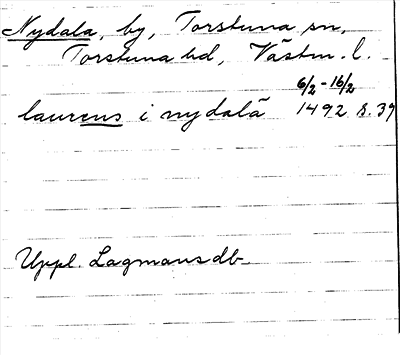 Nydala, by, Torstuna sn,
Torstuna hd, Västm. l.
6/2 - 16/2
laurens i nydalā 1492 s. 39
Uppl. Lagmansdb.